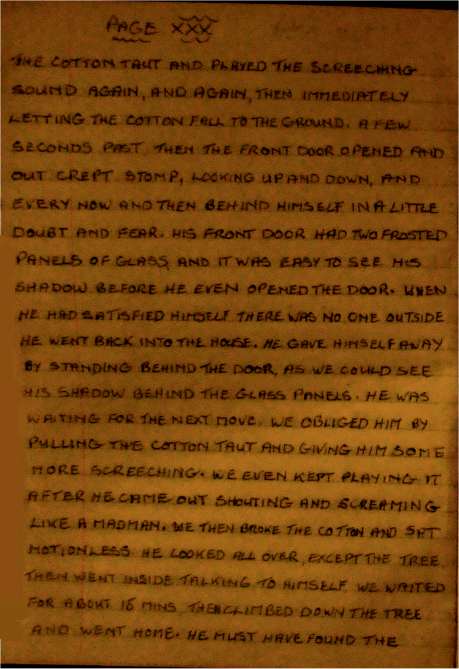 PAGE XXX
THE COTTON TAUT AND PLAYED THE SCREECHING
SOUND AGAIN, AND AGAIN, THEN IMMEDIATELY
LETTING THE COTTON FALL TO THE GROUND. A FEW
SECONDS PAST, THEN THE FRONT DOOR OPENED AND
OUT CREPT STOMP, LOOKING UP AND DOWN, AND
EVERY NOW AND THEN BEHIND HIMSELF IN A LITTLE
DOUBT AND FEAR. HIS FRONT DOOR HAD TWO FROSTED
PANELS OF GLASS, AND IT WAS EASY TO SEE HIS
SHADOW BEFORE HE EVEN OPENED THE DOOR. WHEN
HE HAD SATISFIED HIMSELF THERE WAS NO ONE OUTSIDE
HE WENT BACK INTO THE HOUSE. HE GAVE HIMSELF AWAY
BY STANDING BEHIND THE DOOR, AS WE COULD SEE
HIS SHADOW BEHIND THE GLASS PANELS. HE WAS
WAITING FOR THE NEXT MOVE. WE OBLIGED HIM BY
PULLING THE COTTON TAUT AND GIVING HIM SOME
MORE SCREECHING. WE EVEN KEPT PLAYING IT
AFTER HE CAME OUT SHOUTING AND SCREAMING
LIKE A MADMAN. WE THEN BROKE THE COTTON AND SAT
MOTIONLESS. HE LOOKED ALL OVER, EXCEPT THE TREE.
THEN WENT INSIDE TALKING TO HIMSELF. WE WAITED
FOR ABOUT 15 MINS, THEN CLIMBED DOWN THE TREE
AND WENT HOME. HE MUST HAVE FOUND THE